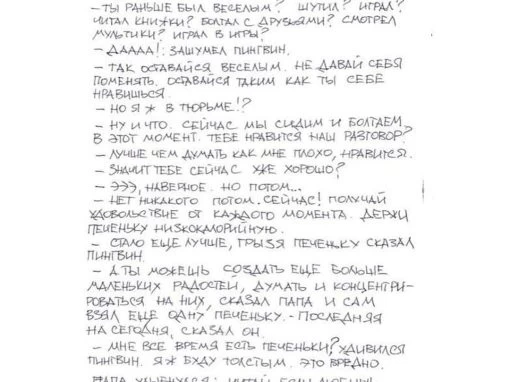 - ТЫ РАНЬШЕ БЫЛ ВЕСЕЛЫМ? ШУТИЛ? ИГРАЛ?
ЧИТАЛ КНИЖКИ? БОЛТАЛ С ДРУЗЬЯМИ? СМОТРЕЛ
МУЛЬТИКИ? ИГРАЛ В ИГРЫ?
- ДАААА!: ЗАШУМЕЛ ПИНГВИН.
- ТАК ОСТАВАЙСЯ ВЕСЕЛЫМ. НЕ ДАВАЙ СЕБЯ
ПОМЕНЯТЬ. ОСТАВАЙСЯ ТАКИМ КАК ТЫ СЕБЕ
НРАВИШЬСЯ.
- НО Я Ж В ТЮРЬМЕ!?
- НУ И ЧТО. СЕЙЧАС МЫ СИДИМ И БОЛТАЕМ
В ЭТОТ МОМЕНТ. ТЕБЕ НРАВИТСЯ НАШ РАЗГОВОР?
- ЛУЧШЕ ЧЕМ ДУМАТЬ КАК МНЕ ПЛОХО, НРАВИТСЯ.
- ЗНАЧИТ ТЕБЕ СЕЙЧАС УЖЕ ХОРОШО?
- ЭЭЭ, НАВЕРНОЕ. НО ПОТОМ...
- НЕТ НИКАКОГО ПОТОМ. СЕЙЧАС! ПОЛУЧАЙ
УДОВОЛЬСТВИЕ ОТ КАЖДОГО МОМЕНТА. ДЕРЖИ
ПЕЧЕНЬКУ НИЗКОКАЛОРИЙНУЮ.
- СТАЛО ЕЩЕ ЛУЧШЕ, ГРЫЗЯ ПЕЧЕНЬКУ СКАЗАЛ
ПИНГВИН.
- А ТЫ МОЖЕШЬ СОЗДАТЬ ЕЩЕ БОЛЬШЕ
МАЛЕНЬКИХ РАДОСТЕЙ, ДУМАТЬ И КОНЦЕНТРИ-
РОВАТЬСЯ НА НИХ, СКАЗАЛ ПАПА И САМ
ВЗЯЛ ЕЩЕ ОДНУ ПЕЧЕНЬКУ. - ПОСЛЕДНЯЯ
НА СЕГОДНЯ, СКАЗАЛ ОН.
- МНЕ ВСЕ ВРЕМЯ ЕСТЬ ПЕЧЕНЬКИ? УДИВИЛСЯ
ПИНГВИН. Я Ж БУДУ ТОЛСТЫМ. ЭТО ВРЕДНО.
ПАПА УЛЫБНУЛСЯ: ЧИТАЙ ЕСЛИ ЛЮБИШЬ